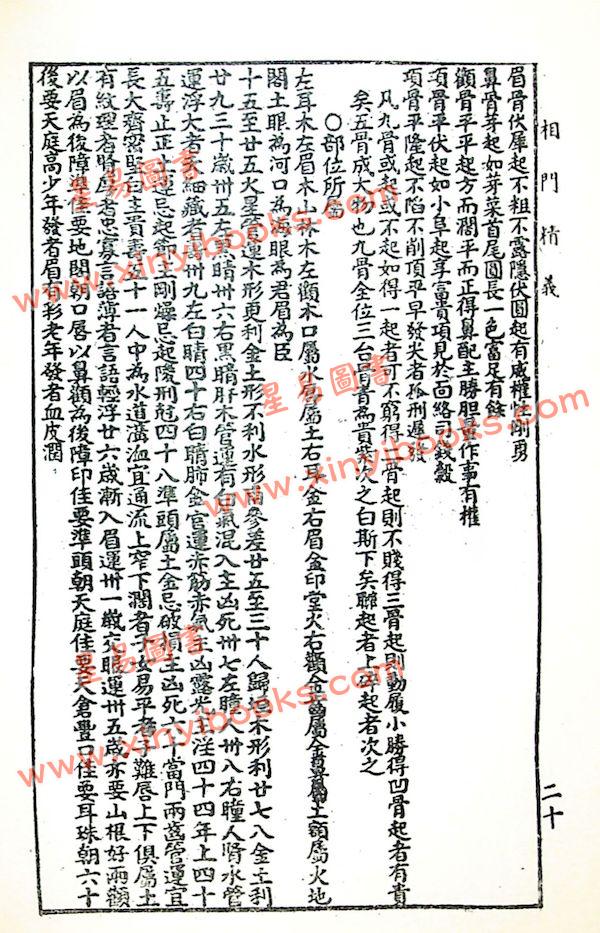 相門精義
眉骨伏犀起不粗不露隱伏圓起有威權性剛勇
鼻骨芽起如芽菜首尾圓長一色富足有餘
顴骨平平起方而濶平而正得鼻配主勝胆量作事有權
項骨平伏起如小阜起享富貴項見於面絡司錢穀
項骨平隆起不陷不削頂平早發尖者孤刑遲發
凡九骨或起或不起如得一起者可不窮得二骨起則不賤得三骨起則動履小勝得凹骨起者有貴
矣五骨成大物也九骨全位三台骨者為貴紫次之白斯下矣聯起者上碎起者次之
○部位所屬
左耳木左眉木山林木左顴木口屬水屬土右耳金右眉金印堂火右顴金屬金鼻屬土額屬火地
閣土眼為河口為海眼為君眉為臣
十五至廿五火星管運木形更利金土形不利水形南參差廿五至三十人歸木形利廿七八金土利
廿九三十歲卅五左黑睛卅六右黑睛肝木管運有白氣混入主凶死卅七左瞳人卅八右瞳人腎水管
運浮大者細藏者卅九左白睛四十右白睛肺金官運赤筋赤氣主凶露光主淫四十四年上四十
五壽上正運忌起節主剛燥忌起陵刑冠四十八準頭屬土金忌破損主凶死六十當門兩齒管運宜
長大齊密堅白主貴壽五十一人中為水道溝洫宜通流上窄下濶者子女易平者子難唇上下俱屬土
有紋理者賢厚者忠寡言語薄者言語輕浮廿六歲漸入眉運卅一歲交眼運卅五歲亦要山根好兩顴
以眉為後障準佳要地閣朝口唇以鼻顴為後障印佳要準頭朝天庭佳要天倉豐口佳要耳珠朝六十
後要天庭高少年發者眉有彩老年發者血皮潤
二十
星易圖書
www.xinyibooks.com
星易圖書
www.xinyibooks.com
星易圖書
www.xinyibooks.com